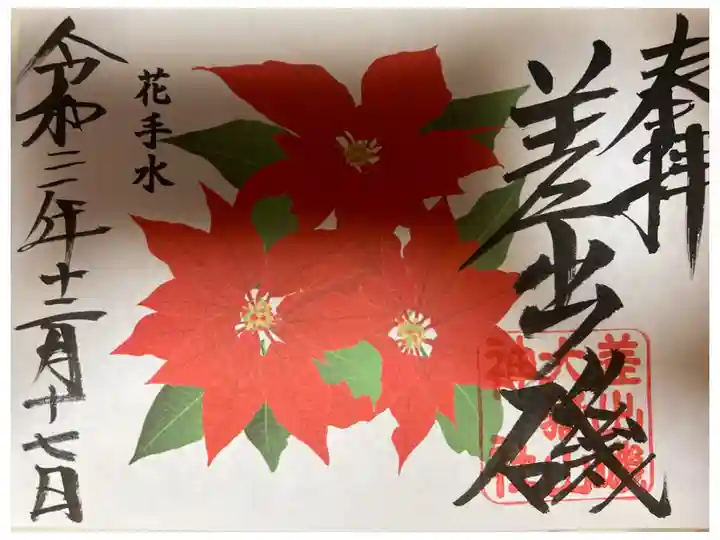 奉拝
差出磯
差出磯
大嶽山
神社
花手水
令和三年十二月十七日